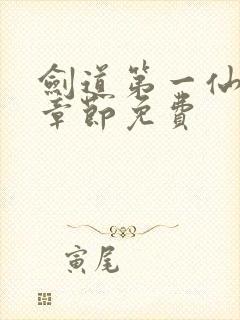 劍道第一仙
章節免費
寅尾